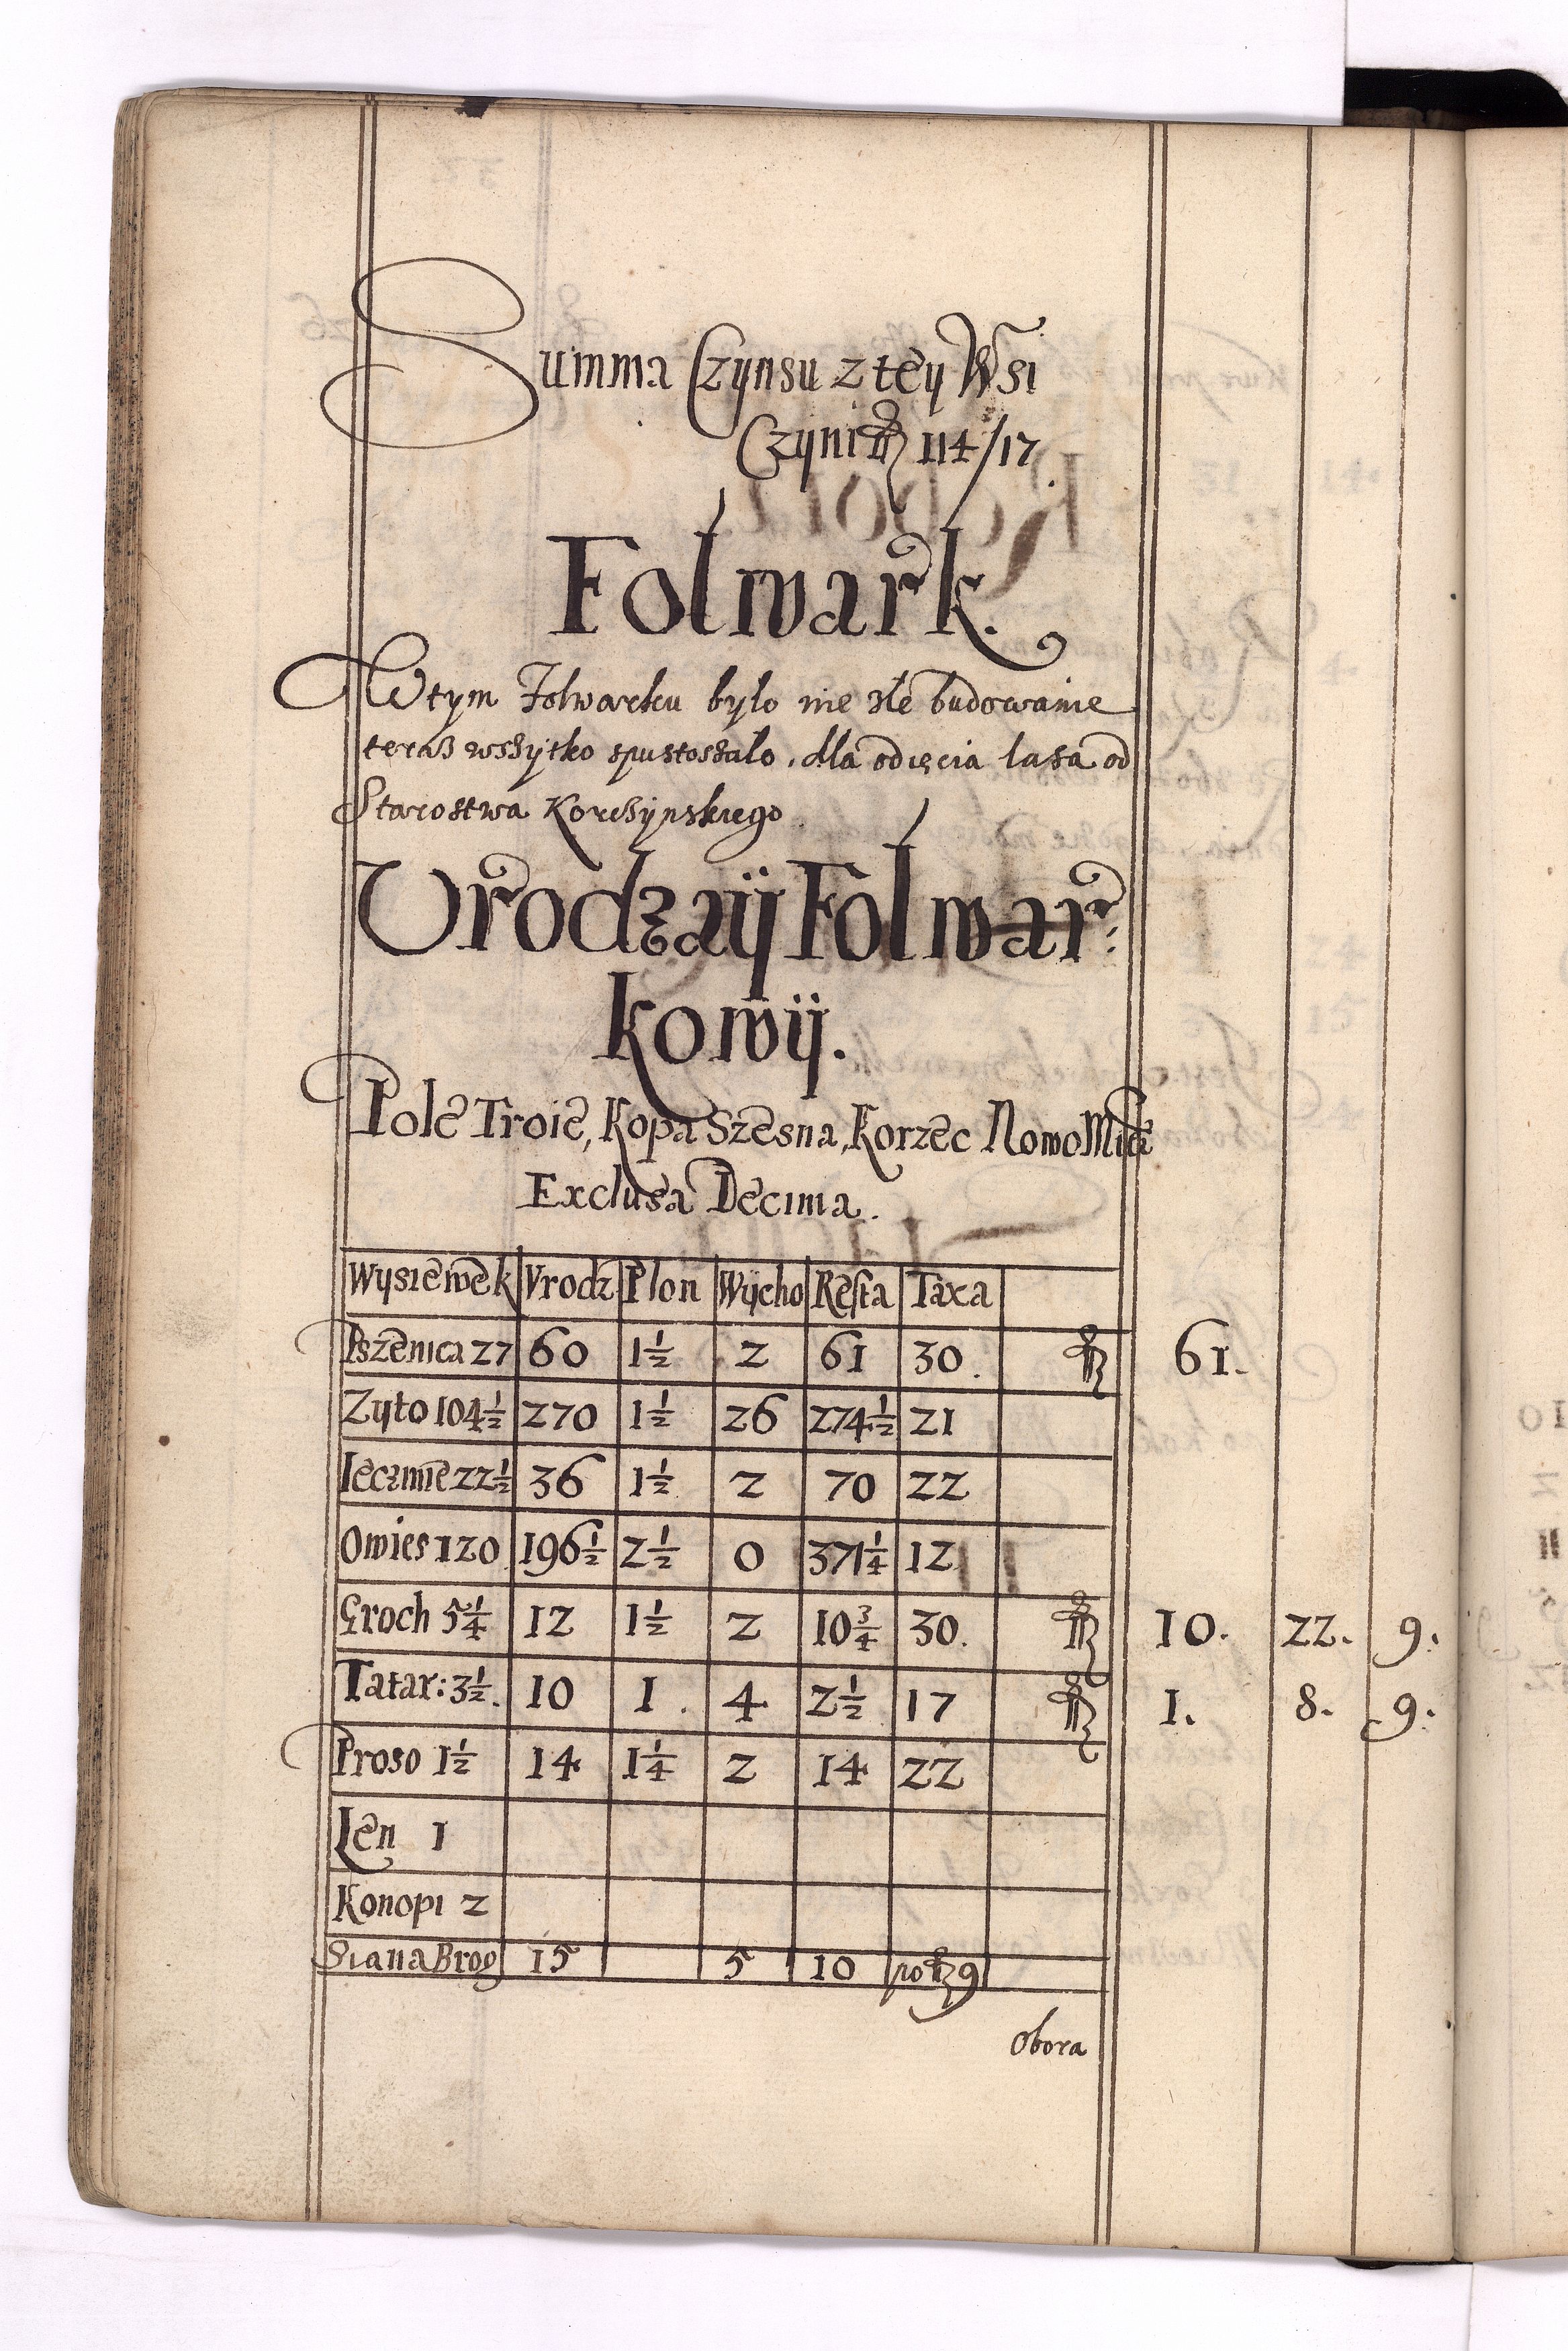 Summa Czynsu z tey Wsi
Czyni fl 114/17
Folwark.
W tym Folwarku było nie złe budowanie
teraß wszytko spustoszało, dla odięcia lasa od
Starostwa Korczynskiego
Urodzaÿ Folwar:
kowÿ.
Pole Troie, Kopa Szesna, Korzec NowoMieÿ
Exclusa Decima.
Wysiewek Vrodz Plon Wÿcho Resta Taxa
Pszenica 27 60 1½ 2 61 30. fl 61.
Zyto 104½ 270 1½ 26 274½ 21
Ięczmie 22½ 36 1½ 2 70 22
Owies 120 196½ 2½ 0 371¼ 12
Groch 5¼ 12 1½ 2 10¾ 30. fl 10. 22. 9.
Tatar: 3½. 10 1. 4 2½ 17 fl 1. 8. 9.
Proso 1½ 14 1¼ 2 14 22
Len 1
Konopi 2
Siana Brog 15 5 10 po fl 9
Obora